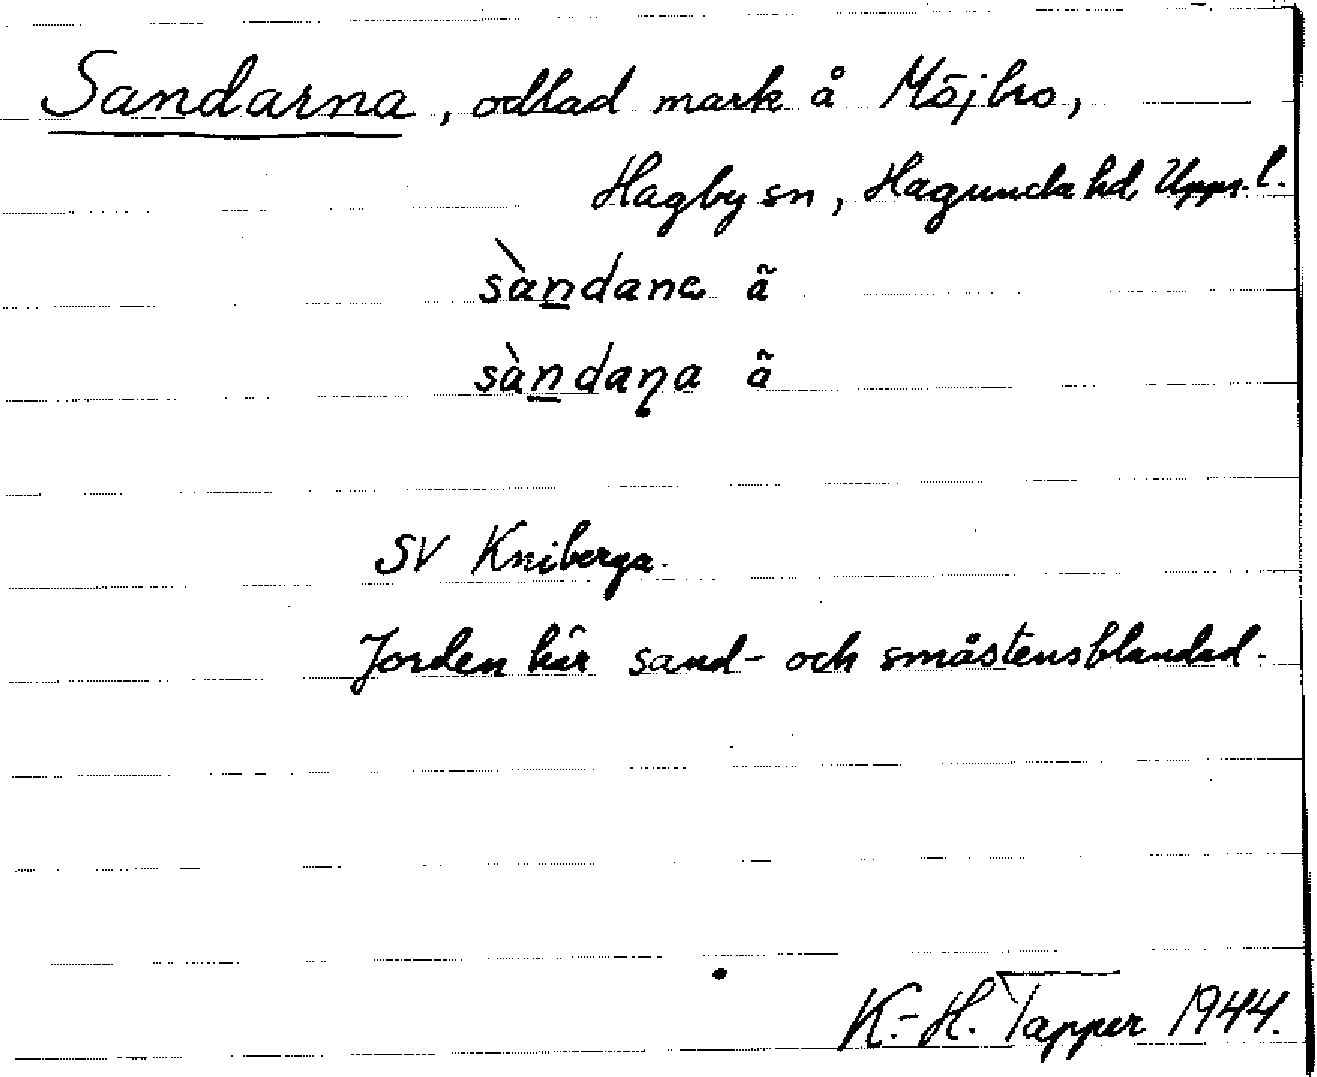 Sandarna, odlad mark å Möjbro,
Hagby sn, Hagunda hd, Upps. l.
sàndana ã
sàndaṇa ã
SV Kniberga.
Jorden här sand- och småstensblandad.
K.-H. Tapper 1944.